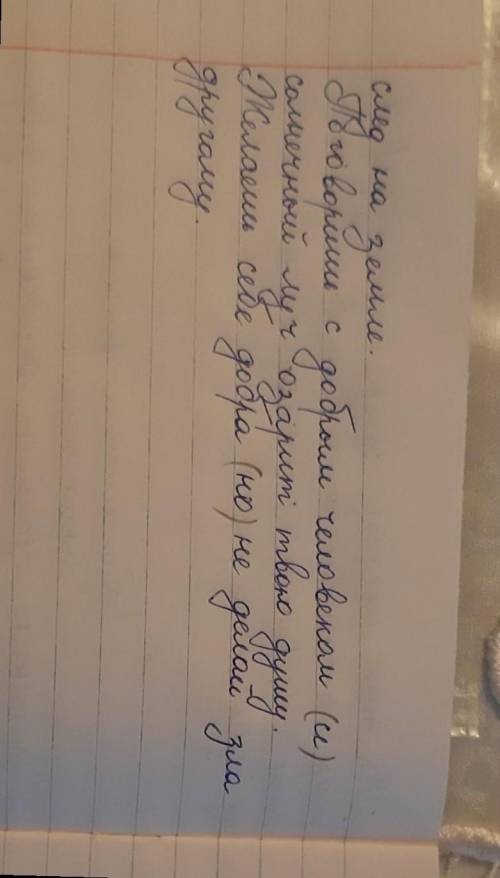 след на земле.
Поговоришь с добрым человеком (и)
солнечный луч озарит твою душу.
Желаешь себе добра (но) не делай зла
другому.